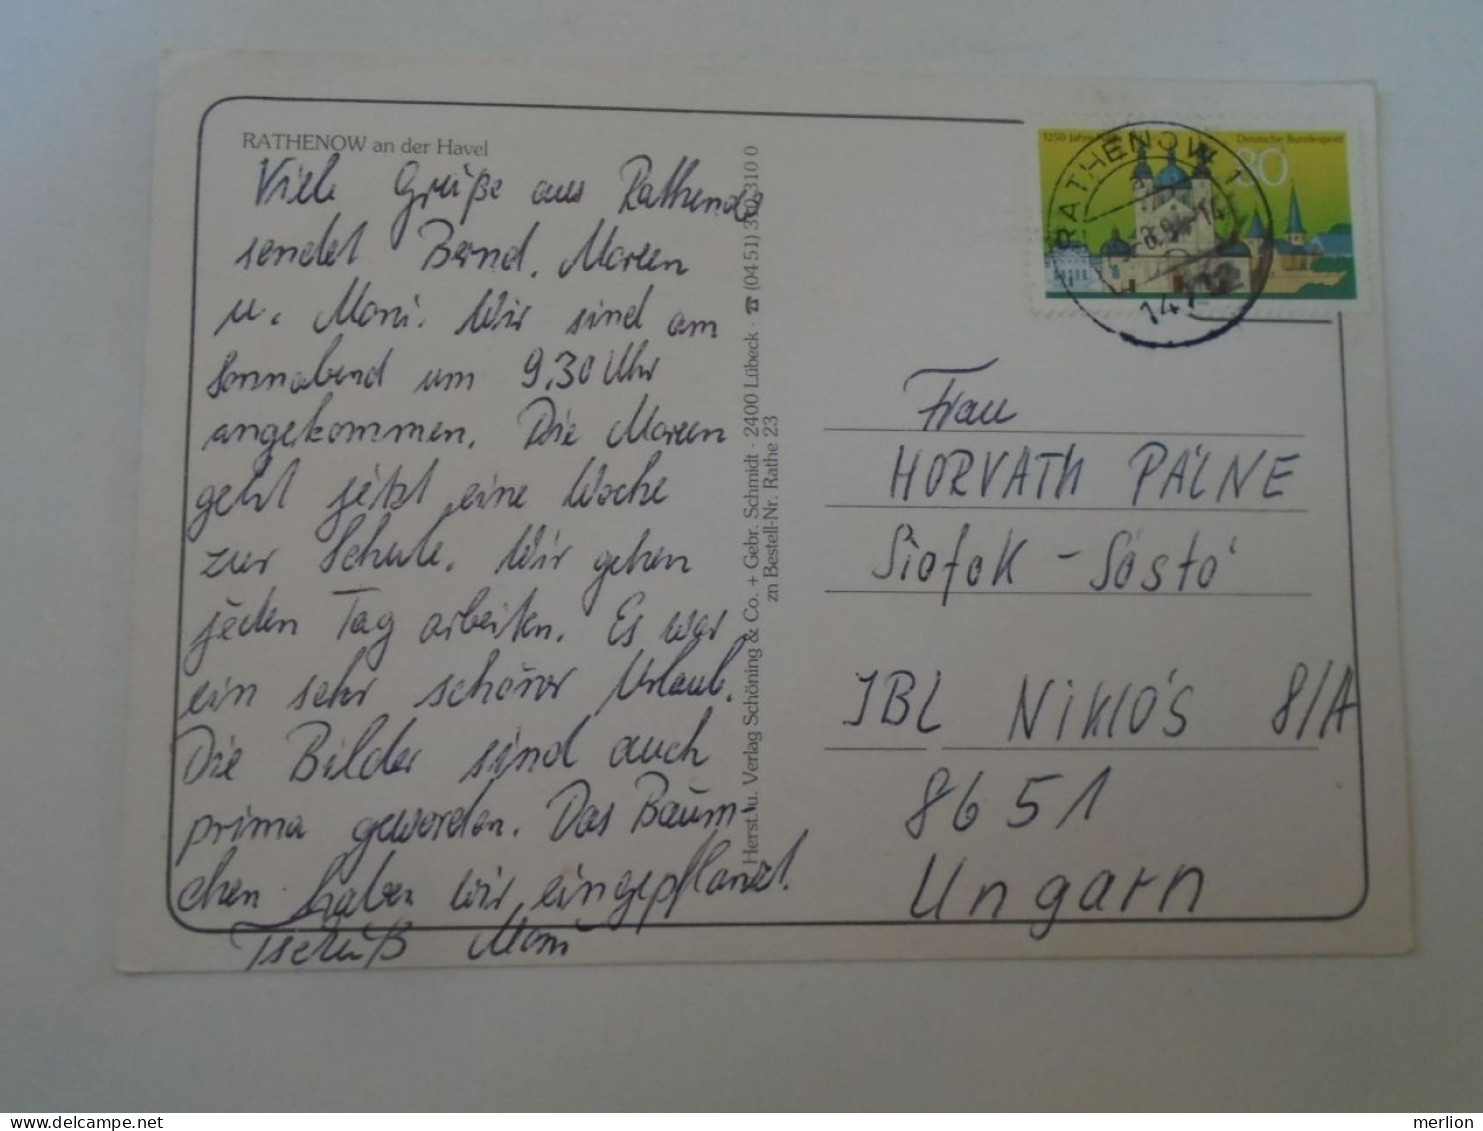 RATHENOW an der Havel
Viele Grüße aus Rathenow
sendet Bernd, Mareen
u. Moni. Wir sind am
Sonnabend um 9.30 Uhr
angekommen. Die Mareen
geht jetzt eine Woche
zur Schule. Wir gehen
jeden Tag arbeiten. Es war
ein sehr schöner Urlaub.
Die Bilder sind auch
prima geworden. Das Bäum-
chen haben wir eingepflanzt.
Tschüß Moni
Herst. u. Verlag Schöning & Co. + Gebr. Schmidt · 2400 Lübeck · ☎ (04 51) 310 310 0
zn Bestell-Nr. Rathe 23
1250 Jahre
Deutsche Bundespost
80
RATHENOW 1
14712
Frau
HORVATH PÁLNE
Siofok - Sóstó
IBL NiKLÓS 8/A
8651
Ungarn
merlion
delcampe.net